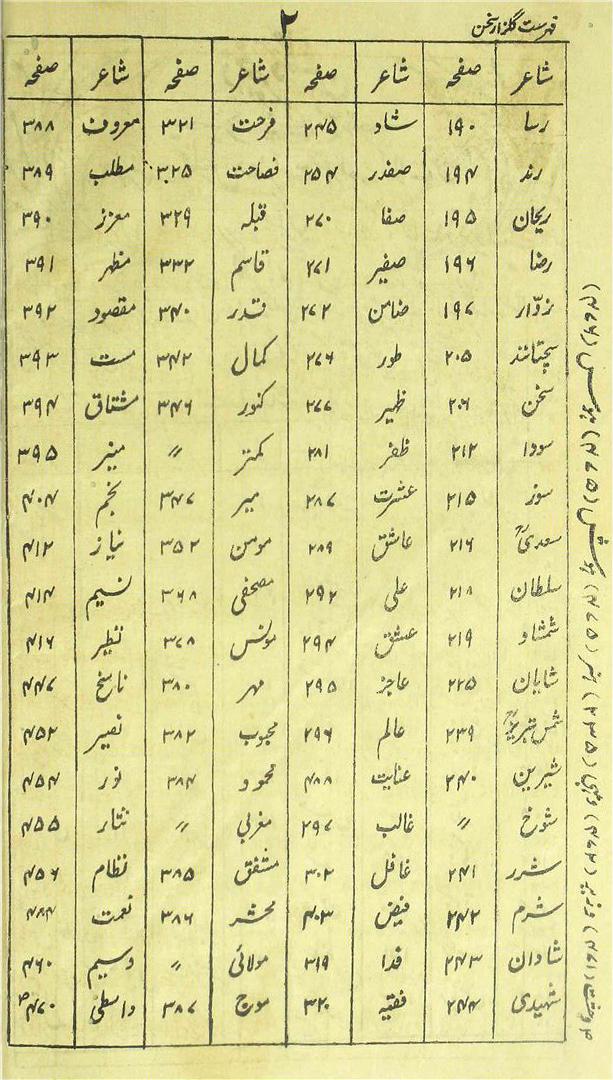 فہرست گلزار سخن
۲
شاعر صفحہ شاعر صفحہ شاعر صفحہ شاعر صفحہ
رسا ۱۹۰ شاد ۲۴۵ فرحت ۳۲۱ معروف ۳۸۸
رند ۱۹۴ صفدر ۲۵۴ فصاحت ۳۲۵ مطلب ۳۸۹
ریحان ۱۹۵ صفا ۲۷۰ قبلہ ۳۲۹ معزز ۳۹۰
رضا ۱۹۶ صفیر ۲۷۱ قاسم ۳۳۲ مظہر ۳۹۱
زوّار ۱۹۷ ضامن ۲۷۲ قدر ۳۴۰ مقصود ۳۹۲
سچتانند ۲۰۵ طور ۲۷۶ کمال ۳۴۲ مست ۳۹۳
سخن ۲۰۶ ظہیر ۲۷۷ کنور ۳۴۶ مشتاق ۳۹۴
سودا ۲۱۲ ظفر ۲۸۱ کمتر 〃 منیر ۳۹۵
سوز ۲۱۵ عشرت ۲۸۷ میر ۳۴۷ نجم ۴۰۴
سعدیؒ ۲۱۶ عاشق ۲۸۹ مومن ۳۵۲ نیاز ۴۱۲
سلطان ۲۱۸ علی ۲۹۲ مصحفی ۳۶۸ نسیم ۴۱۴
شمشاد ۲۱۹ عشق ۲۹۴ مونس ۳۷۸ نظیر ۴۱۶
شایان ۲۲۵ عاجز ۲۹۵ مہر ۳۸۰ ناسخ ۴۴۷
شمس تبریزؒ ۲۳۹ عالم ۲۹۶ محبوب ۳۸۲ نصیر ۴۵۲
شیرین ۲۴۰ عنایت ۴۸۸ محمود ۳۸۴ نور ۴۵۴
شوخ 〃 غالب ۲۹۷ مغربی 〃 نثار ۴۵۵
شرر ۲۴۱ غافل ۳۰۲ مشفق ۳۸۵ نظام ۴۵۶
شرم ۲۴۲ فیض ۴۰۳ محشر ۳۸۶ نعمت ۴۸۴
شادان ۲۴۳ فدا ۳۱۹ مولائی 〃 وسیم ۴۶۰
شہیدی ۲۴۴ فقیہ ۳۲۰ موج ۳۸۷ واسطی ۴۷۰
(۴۷۱) وزیر (۴۷۲) وہبی (۲۳۵) ہنر (۴۷۵) ہوش (۴۷۵) ہوس (۴۷۶)